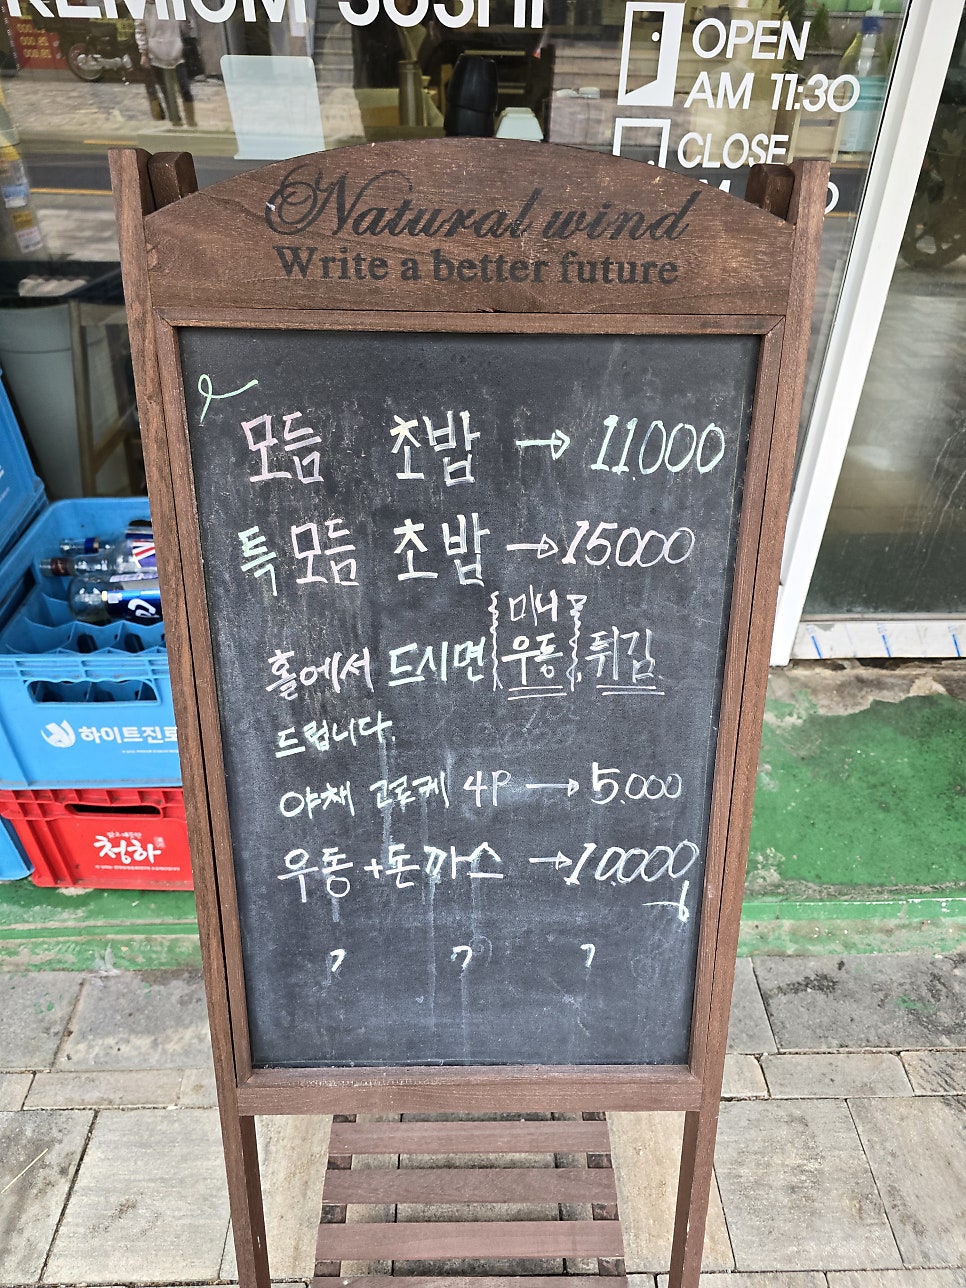 PREMIUM SUSHI
OPEN
AM 11:30
CLOSE
Natural wind
Write a better future
모듬 초밥 → 11.000
특 모듬 초밥 → 15.000
미니
홀에서 드시면 우동 튀김
드립니다.
야채 고로케 4P → 5.000
우동 + 돈까스 → 10.000
하이트진로
청하